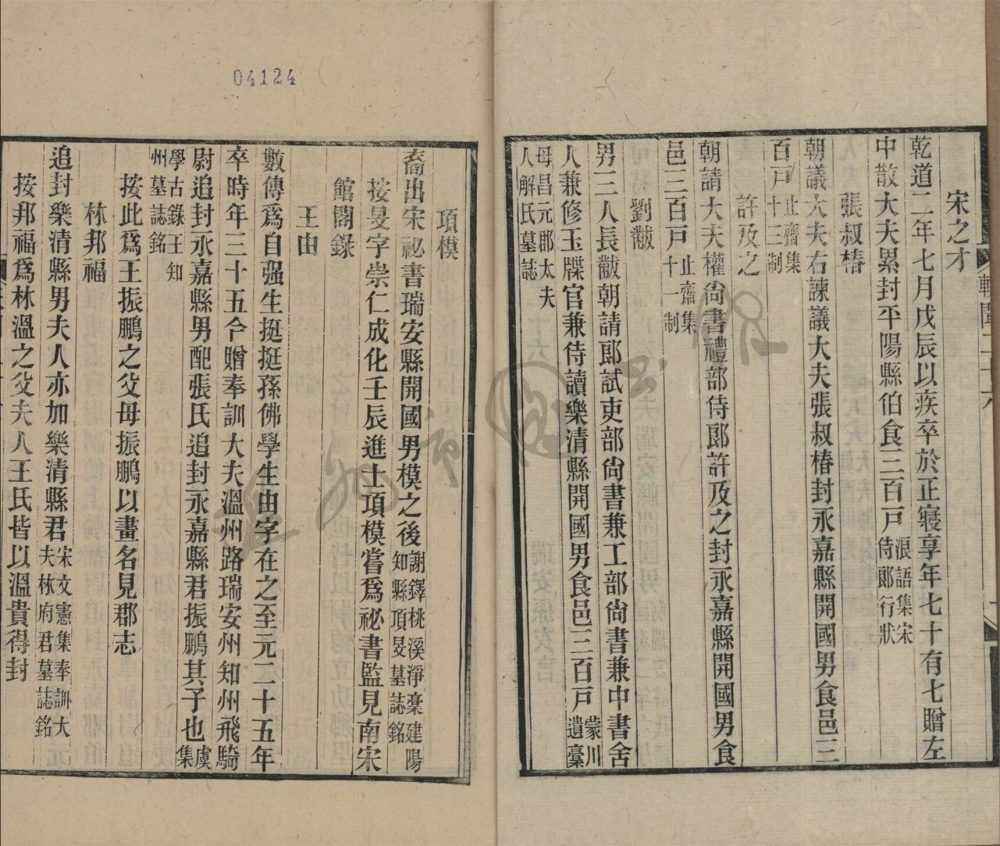 宋之才
乾道二年七月戊辰以疾卒於正寢享年七十有七贈左
中散大夫累封平陽縣伯食三百戸浪語集宋
侍郎行狀
張叔椿
朝議大夫右諫議大夫張叔椿封永嘉縣開國男食邑三
百戸止齋集
十三制
許及之
朝請大夫權尙書禮部侍郎許及之封永嘉縣開國男食
邑三百戸止齋集
十一制
劉黻
男三人長黻朝請郎試吏部尙書兼工部尙書兼中書舍
人兼修玉牒官兼侍讀樂清縣開國男食邑三百戸蒙川
遺稾
母昌元郡太夫
人解氏墓誌
項模
裔出宋祕書瑞安縣開國男模之後謝鐸桃溪淨稾建陽
知縣項旻墓誌銘
按旻字崇仁成化壬辰進士項模嘗爲祕書監見南宋
館閣錄
王由
數傳爲自强生挺挺孫佛學生由字在之至元二十五年
卒時年三十五合贈奉訓大夫溫州路瑞安州知州飛騎
尉追封永嘉縣男配張氏追封永嘉縣君振鵬其子也虞集
學古錄王知
州墓誌銘
按此爲王振鵬之父母振鵬以畫名見郡志
林邦福
追封樂清縣男夫人亦加樂清縣君宋文憲集奉訓大
夫林府君墓誌銘
按邦福爲林溫之父夫人王氏皆以溫貴得封
04124